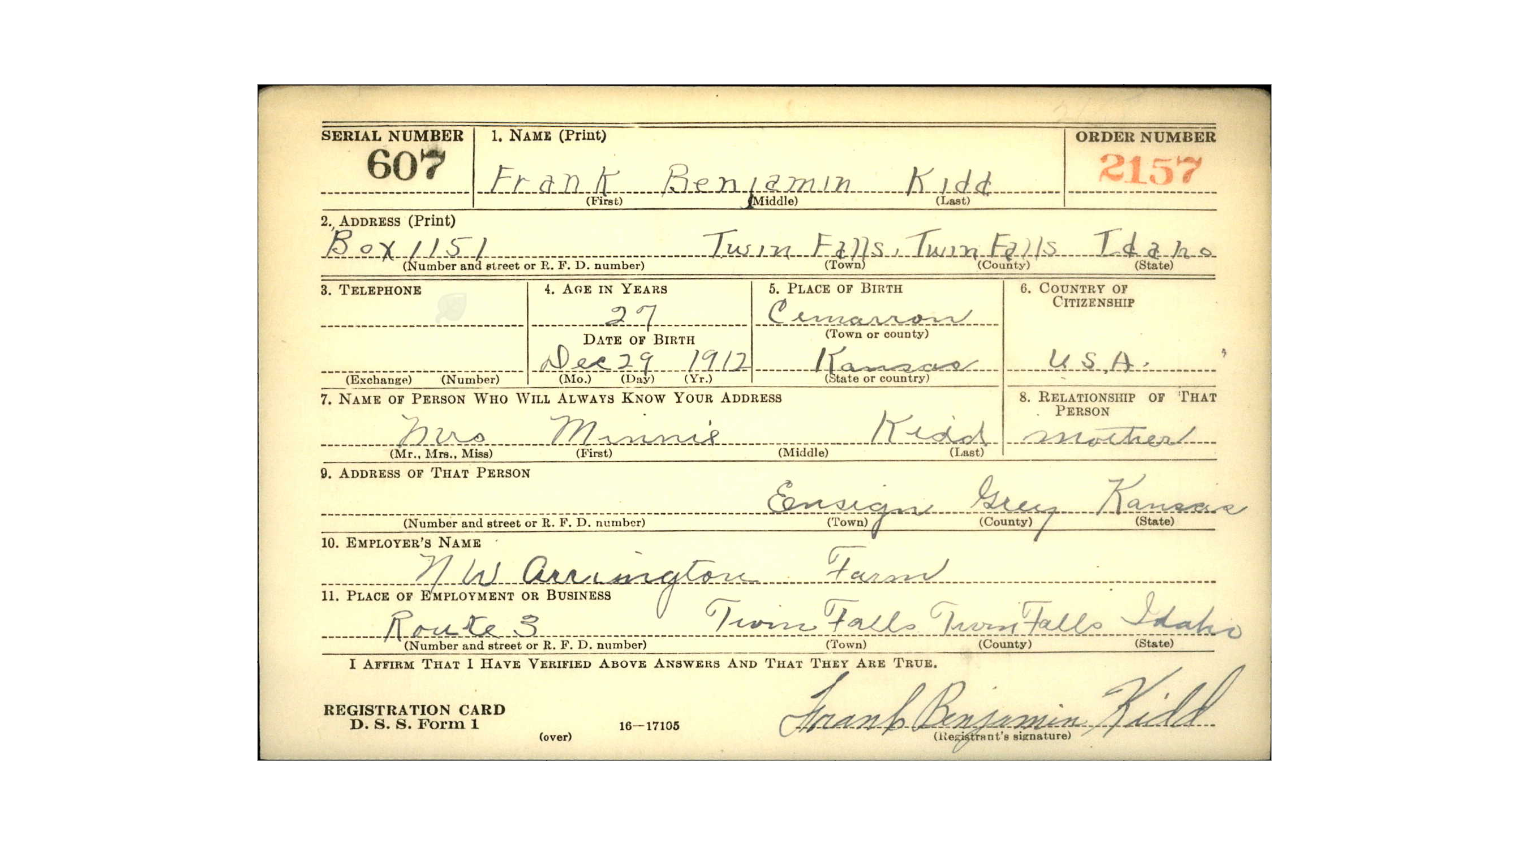 SERIAL NUMBER 1. NAME (Print) ORDER NUMBER
607 Frank Benjamin Kidd 2157
(First) (Middle) (Last)
2. ADDRESS (Print)
Box 1151 Twin Falls, Twin Falls Idaho
(Number and street or R. F. D. number) (Town) (County) (State)
3. TELEPHONE 4. AGE IN YEARS 5. PLACE OF BIRTH 6. COUNTRY OF CITIZENSHIP
27 Cimarron
DATE OF BIRTH (Town or county)
Dec 29 1912 Kansas U.S.A.
(Exchange) (Number) (Mo.) (Day) (Yr.) (State or country)
7. NAME OF PERSON WHO WILL ALWAYS KNOW YOUR ADDRESS 8. RELATIONSHIP OF THAT PERSON
Mrs Minnie Kidd mother
(Mr., Mrs., Miss) (First) (Middle) (Last)
9. ADDRESS OF THAT PERSON
Ensign Grey Kansas
(Number and street or R. F. D. number) (Town) (County) (State)
10. EMPLOYER'S NAME
N W Arrington Farm
11. PLACE OF EMPLOYMENT OR BUSINESS
Route 3 Twin Falls Twin Falls Idaho
(Number and street or R. F. D. number) (Town) (County) (State)
I AFFIRM THAT I HAVE VERIFIED ABOVE ANSWERS AND THAT THEY ARE TRUE.
REGISTRATION CARD
D. S. S. Form 1 16—17105 Frank Benjamin Kidd
(over) (Registrant's signature)